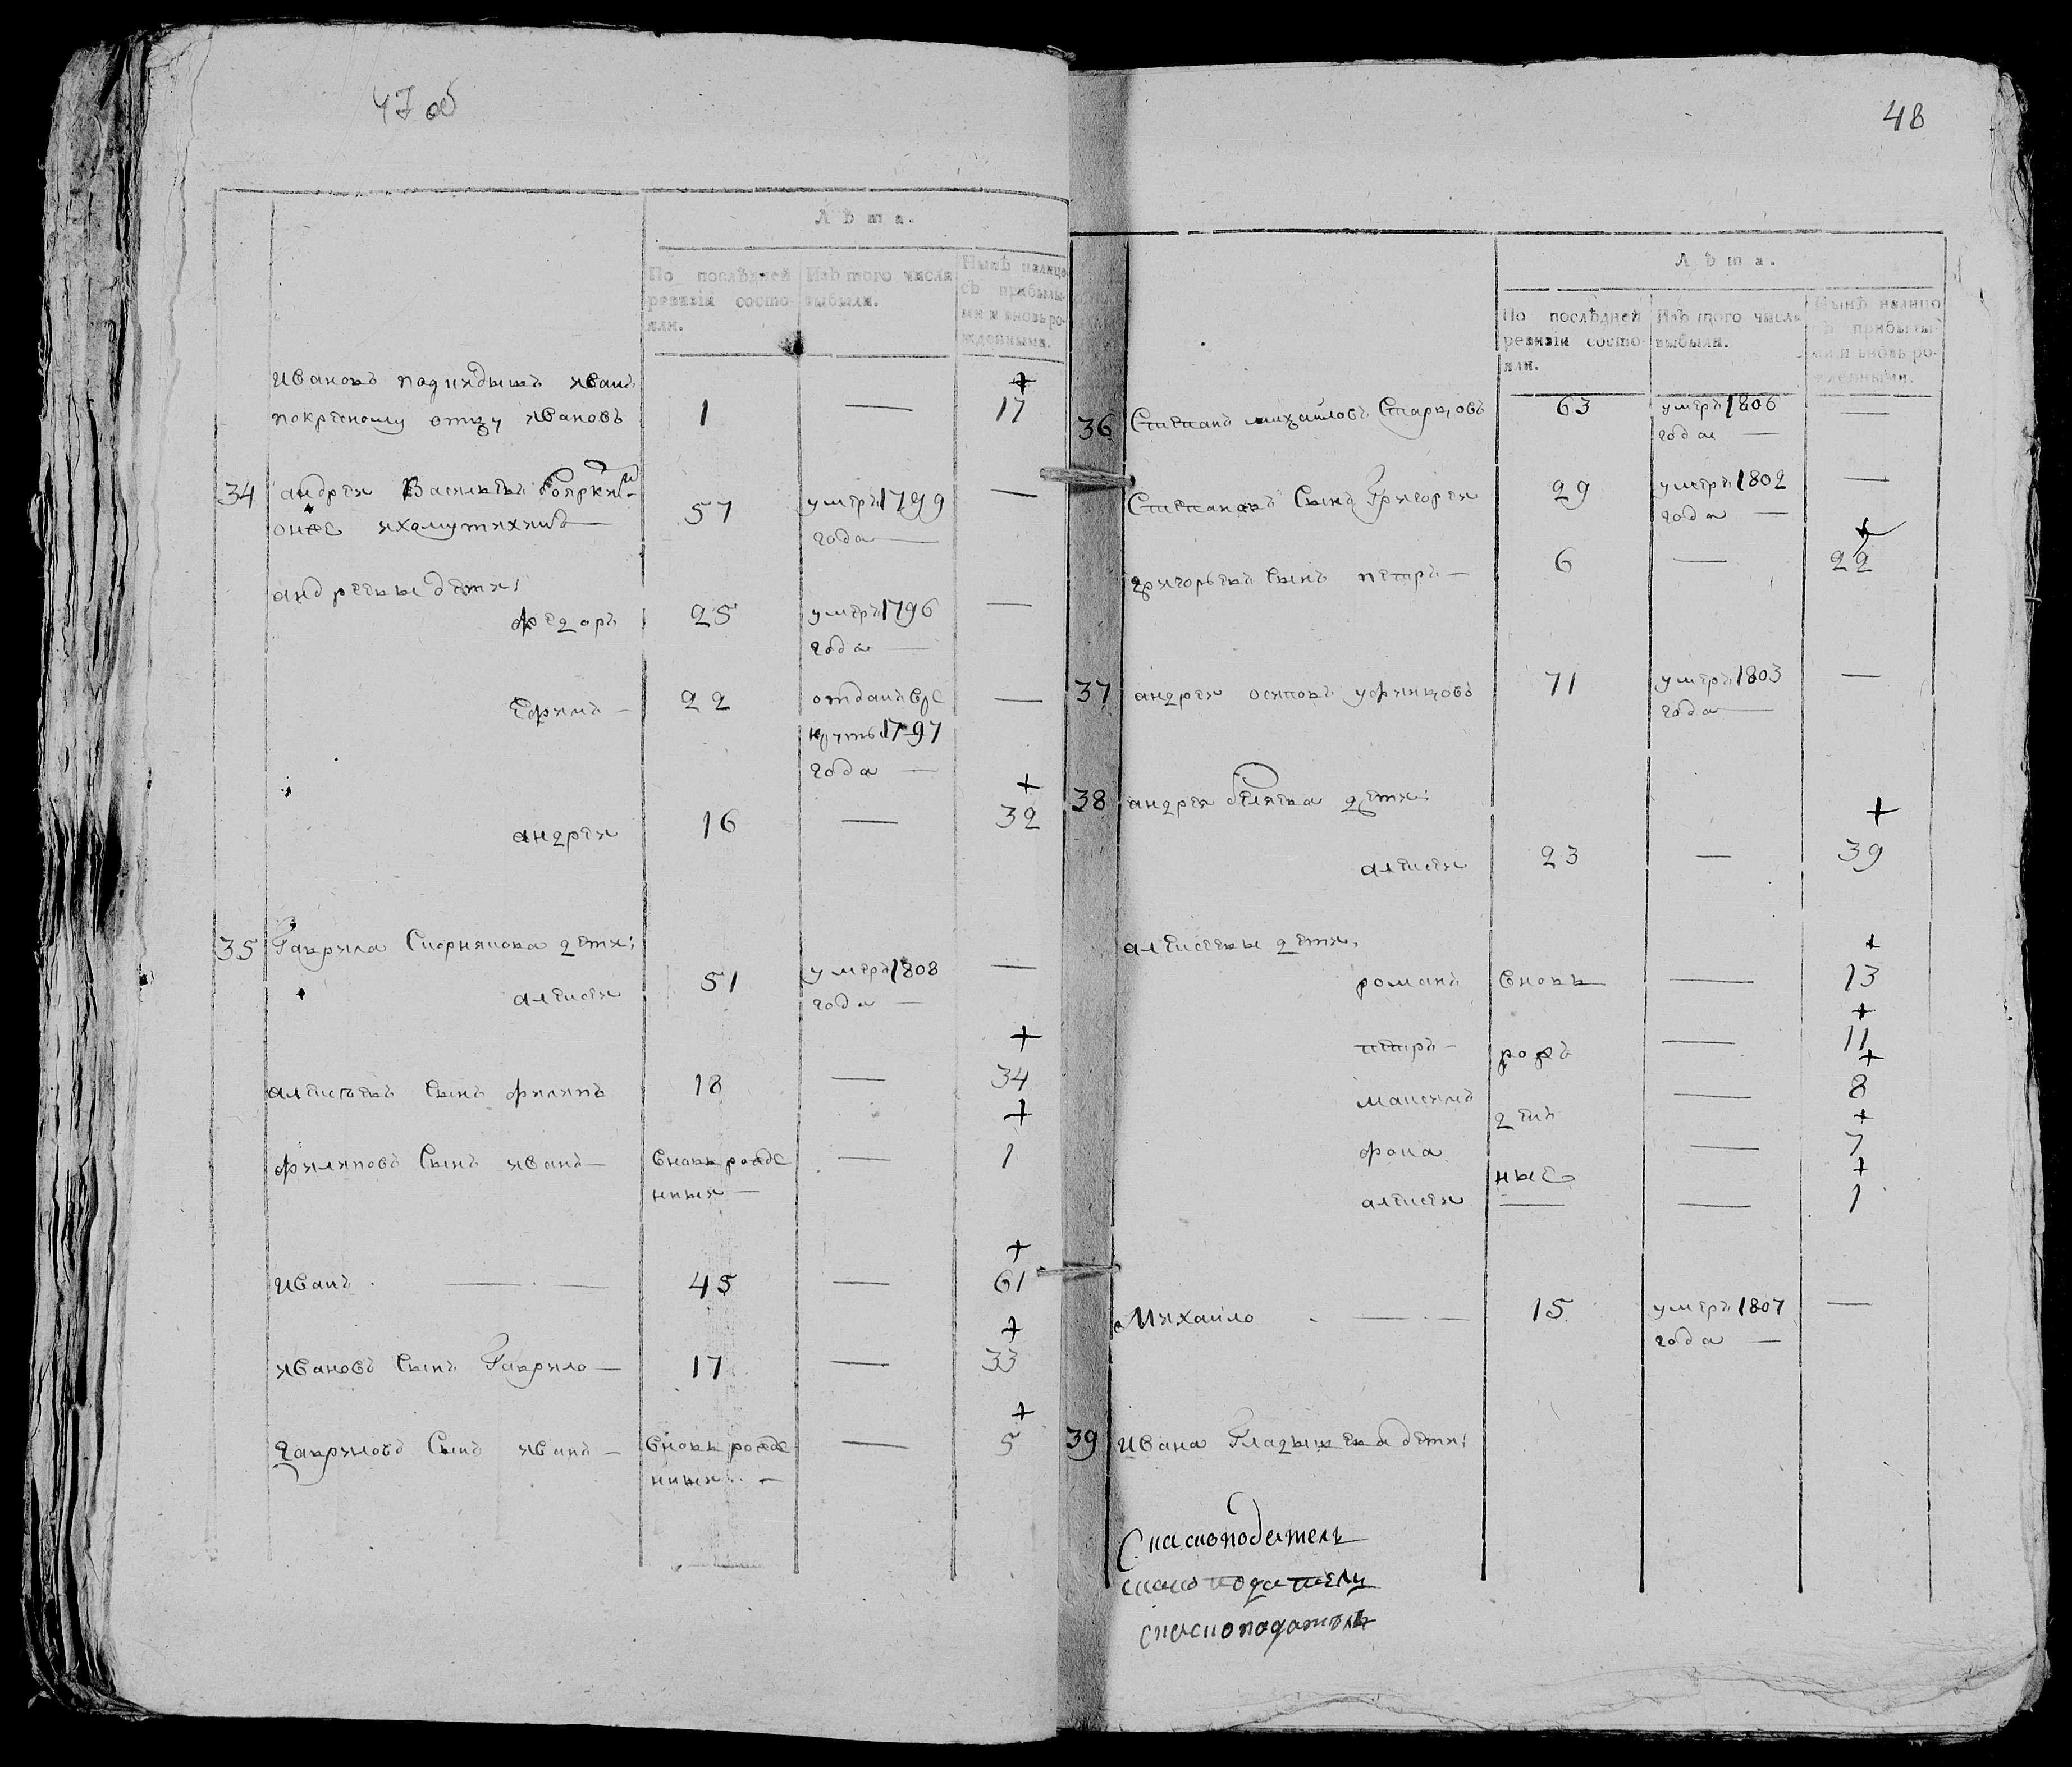 47 об
Лѣта.
По послѣдней
ревизіи состо-
яли.
Изъ того числа
выбыли.
Нынѣ налицо
съ прибылы-
ми и вновь ро-
жденными.
Ивановъ подкидышъ иванъ
покрѣсному отцу ивановъ
1
—
+
17
34
андрей Васильевъ Бояркинъ
онже ихомутихинъ
57
умеръ 1799
года —
—
андреевы дети:
федоръ
25
умеръ 1796
года —
—
Ефимъ —
22
отданъ врe
круты 1797
года —
—
андрей
16
—
+
32
35
Гаврила дети:
алексей
51
умеръ 1808
года —
—
алексеевъ сынъ филипъ
18
—
+
34
филиповъ сынъ иванъ —
вновь рожде
нный —
—
+
1
Иванъ — —
45
—
+
61
ивановъ сынъ Гаврило —
17
—
+
33
Гавриловъ сынъ иванъ —
вновь рожде
нный —
—
+
5
48
Лѣта.
По послѣдней
ревизіи состо-
яли.
Изъ того числа
выбыли.
Нынѣ налицо
съ прибылы-
ми и вновь ро-
жденными.
36
Степанъ михайловъ Старцовъ
63
умеръ 1806
года —
—
Степановъ сынъ Григорей
29
умеръ 1802
года —
—
григорьевъ сынъ петръ —
6
—
+
22
37
андрей осиповъ уфинцовъ
71
умеръ 1803
года —
—
38
андрея беляева дети:
алексей
23
—
+
39
алексеевы дети:
романъ
вновь
—
+
13
петръ —
рож
—
+
11
максимъ
ден
—
+
8
фока
ные
—
+
7
алексей
—
—
+
1
Михайло — —
15
умеръ 1807
года —
—
39
Ивана Гладышева дети:
Скаскоподатель
скаско податель
скаскоподатель